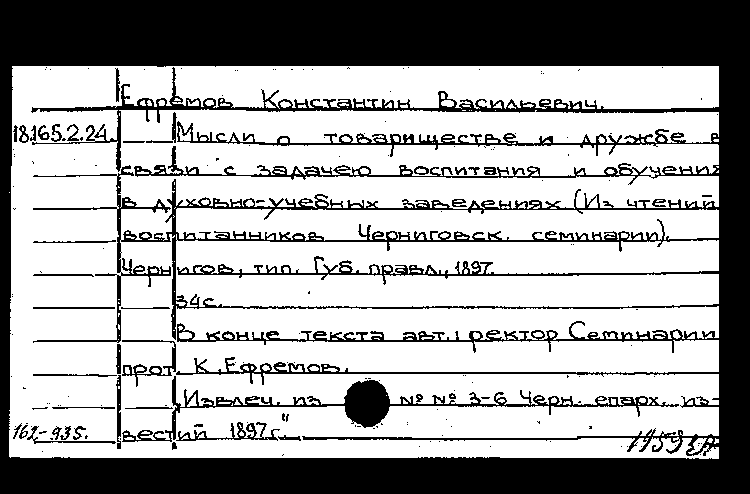 Ефремов Константин Васильевич.
18.165.2.24. Мысли о товариществе и дружбе в
связи с задачею воспитания и обучения
в духовно-учебных заведениях (Из чтений
воспитанников Черниговск. семинарии).
Чернигов, тип. Губ. правл., 1897.
34с.
В конце текста авт.: ректор Семинарии
прот. К. Ефремов.
„Извлеч. из №№ 3-6 Черн. епарх. из-
162-935. вестий 1897г."